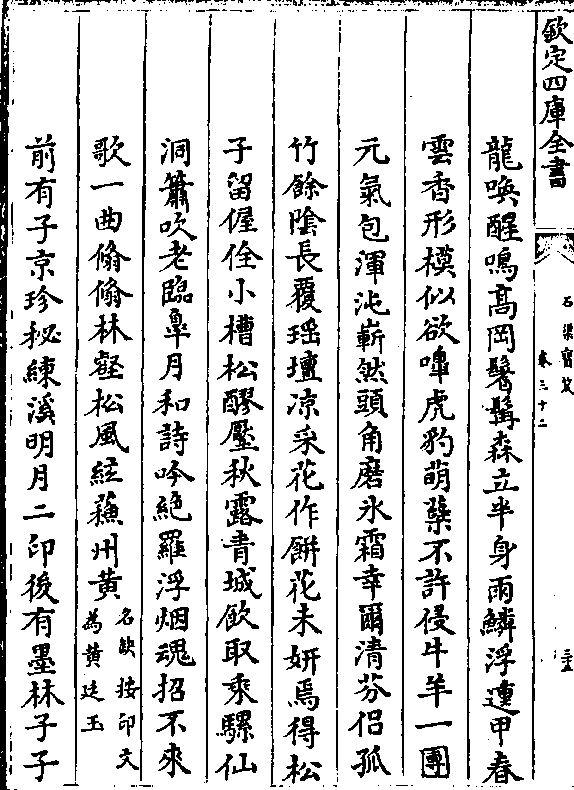 欽定四庫全書
石渠寶笈
卷三十二
三五
龍喚醒鳴高岡鬐鬛森立半身雨鱗浮連甲春
雲香形模似欲嘷虎豹萌蘖不許侵牛羊一團
元氣包渾沌嶄然頭角磨氷霜幸爾清芬侣孤
竹餘陰長覆瑶壇凉采花作餅花未妍焉得松
子留偓佺小槽松醪壓秋露青城飲取乘騾仙
洞簫吹老臨臯月和詩吟絶羅浮烟魂招不來
歌一曲翛翛林壑松風絃蘓州黄名缺按印文為黄廷玉
前有子京珍秘練溪明月二印後有墨林子子